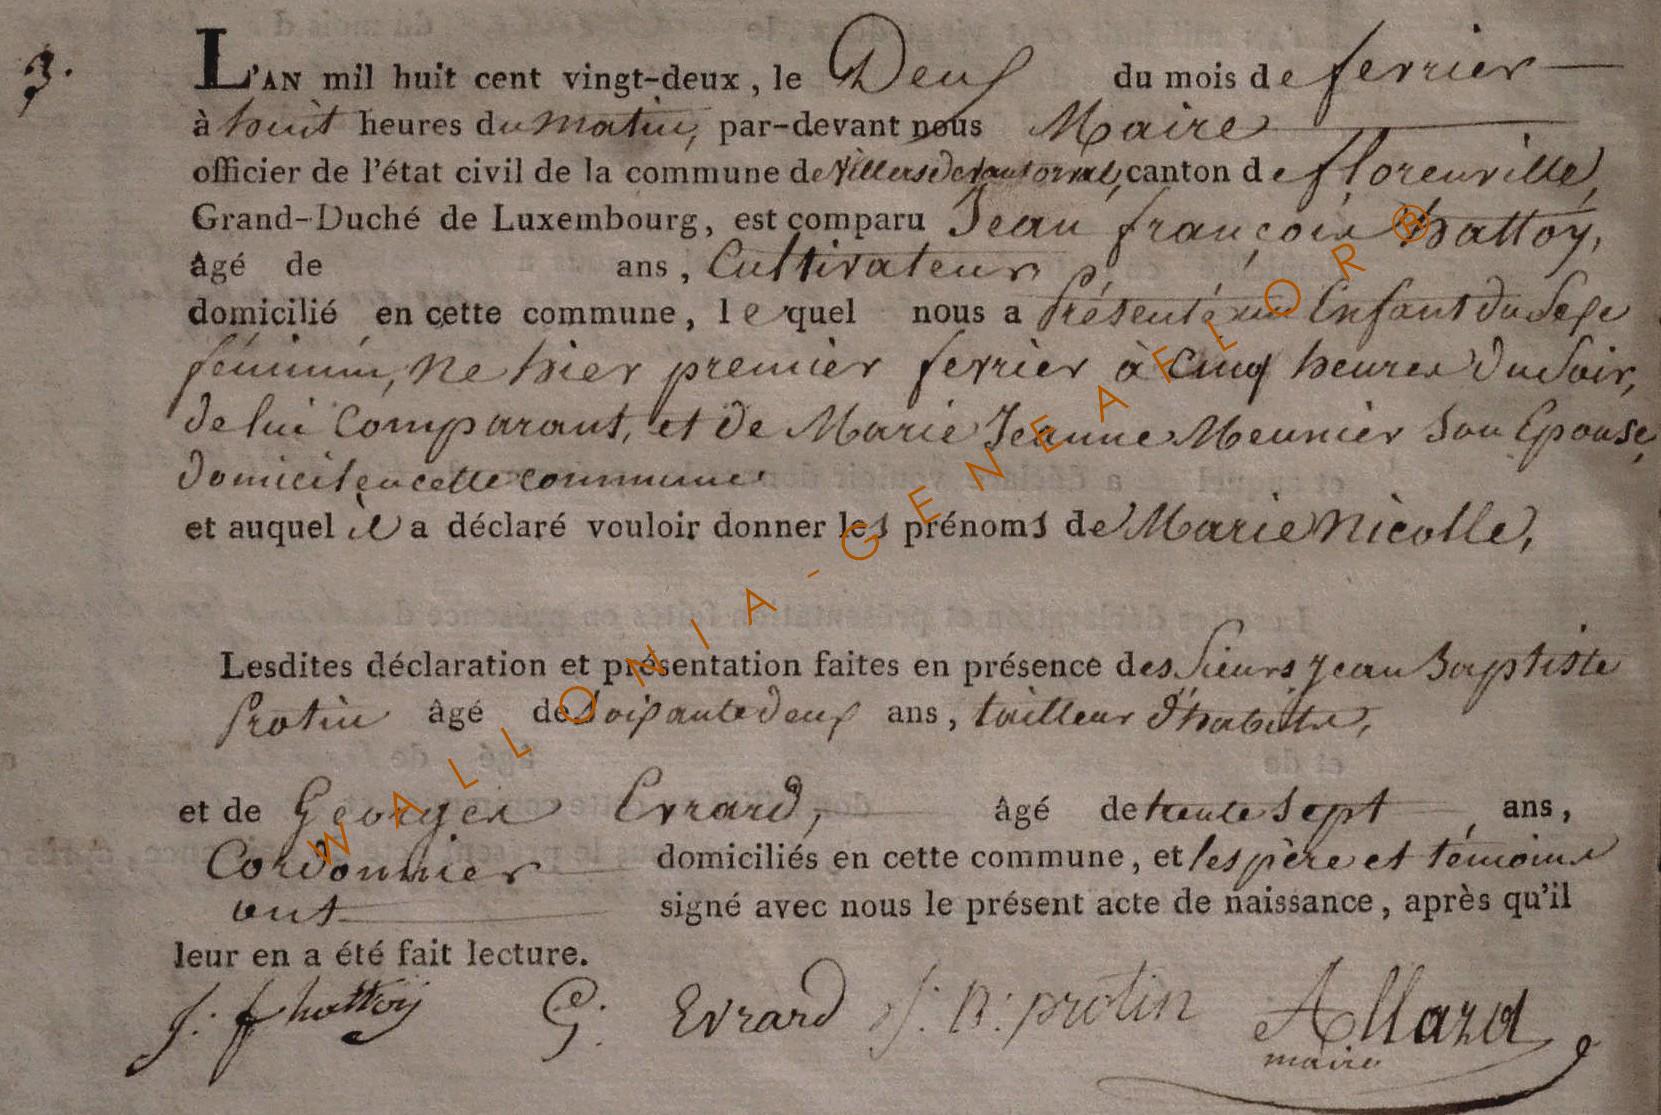 3.
L'AN mil huit cent vingt-deux, le Deux du mois de fevrier
à huit heures du matin, par-devant nous Maire
officier de l'état civil de la commune de Villersdevantorval, canton de florenville,
Grand-Duché de Luxembourg, est comparu Jean françois hattoy,
âgé de ans, Cultivateur,
domicilié en cette commune, lequel nous a Présenté un Enfant du Sexe
féminin, Ne hier premier fevrier à cinq heures du Soir,
de lui Comparant, et de Marie Jeanne Meunier Son Epouse,
domicil en cette commune
et auquel il a déclaré vouloir donner les prénoms de Marie Nicolle,
Lesdites déclaration et présentation faites en présence des Sieurs Jean Baptiste
Protin âgé de Soixante deux ans, tailleur d'habits,
et de Georges Evrard, âgé de trente Sept ans,
Cordonnier domiciliés en cette commune, et les père et témoins
ont signé avec nous le présent acte de naissance, après qu'il
leur en a été fait lecture.
J: f hattoy G: Evrard J: B: protin Allard
maire
WALLONIA-GENEAFLOR®